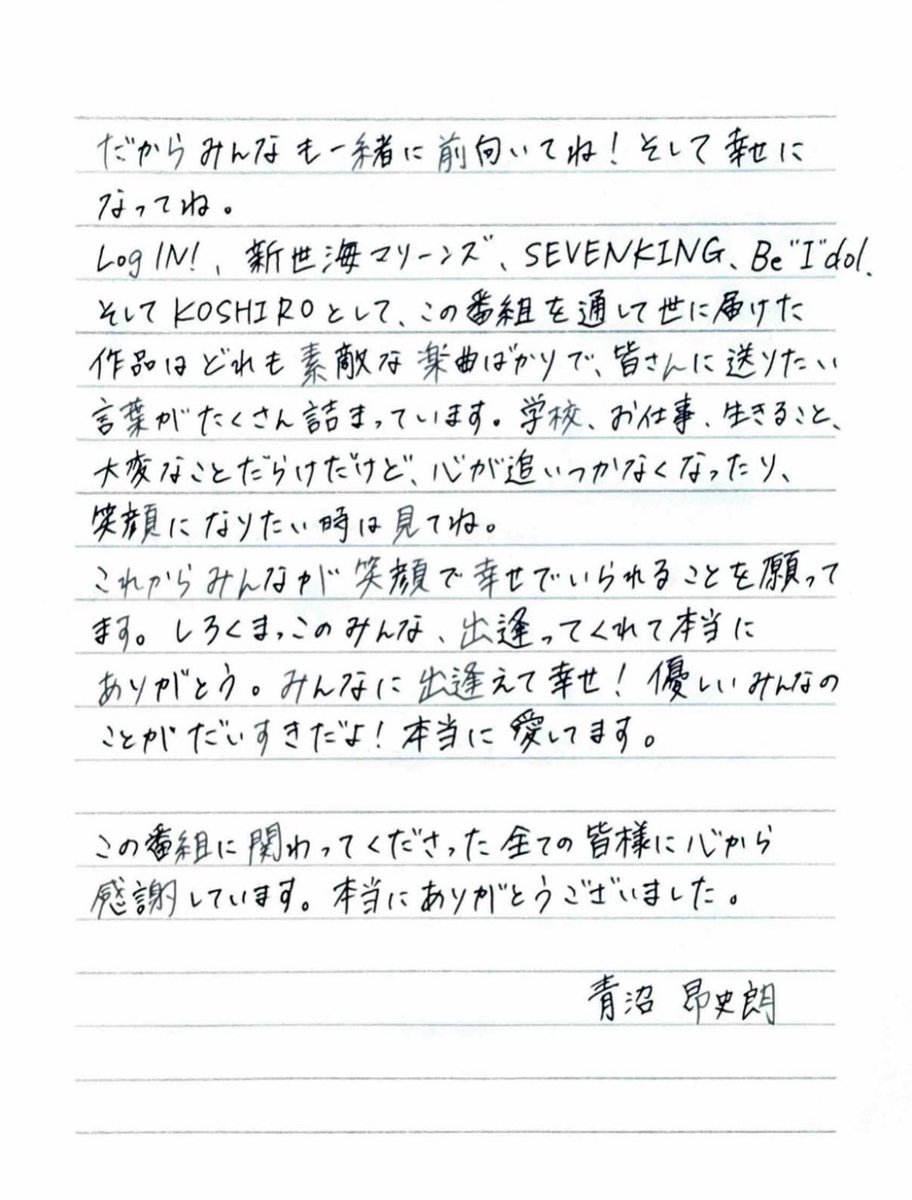 だからみんなも一緒に前向いてね！そして幸せに
なってね。
Log IN!、新世海マリーンズ、SEVENKING、Be"I"dol、
そしてKOSHIROとして、この番組を通して世に届けた
作品はどれも素敵な楽曲ばかりで、皆さんに送りたい
言葉がたくさん詰まっています。学校、お仕事、生きること、
大変なことだらけだけど、心が追いつかなくなったり、
笑顔になりたい時は見てね。
これからみんなが笑顔で幸せでいられることを願って
ます。しろくまっこのみんな、出逢ってくれて本当に
ありがとう。みんなに出逢えて幸せ！優しいみんなの
ことがだいすきだよ！本当に愛してます。
この番組に関わってくださった全ての皆様に心から
感謝しています。本当にありがとうございました。
青沼 昂史朗